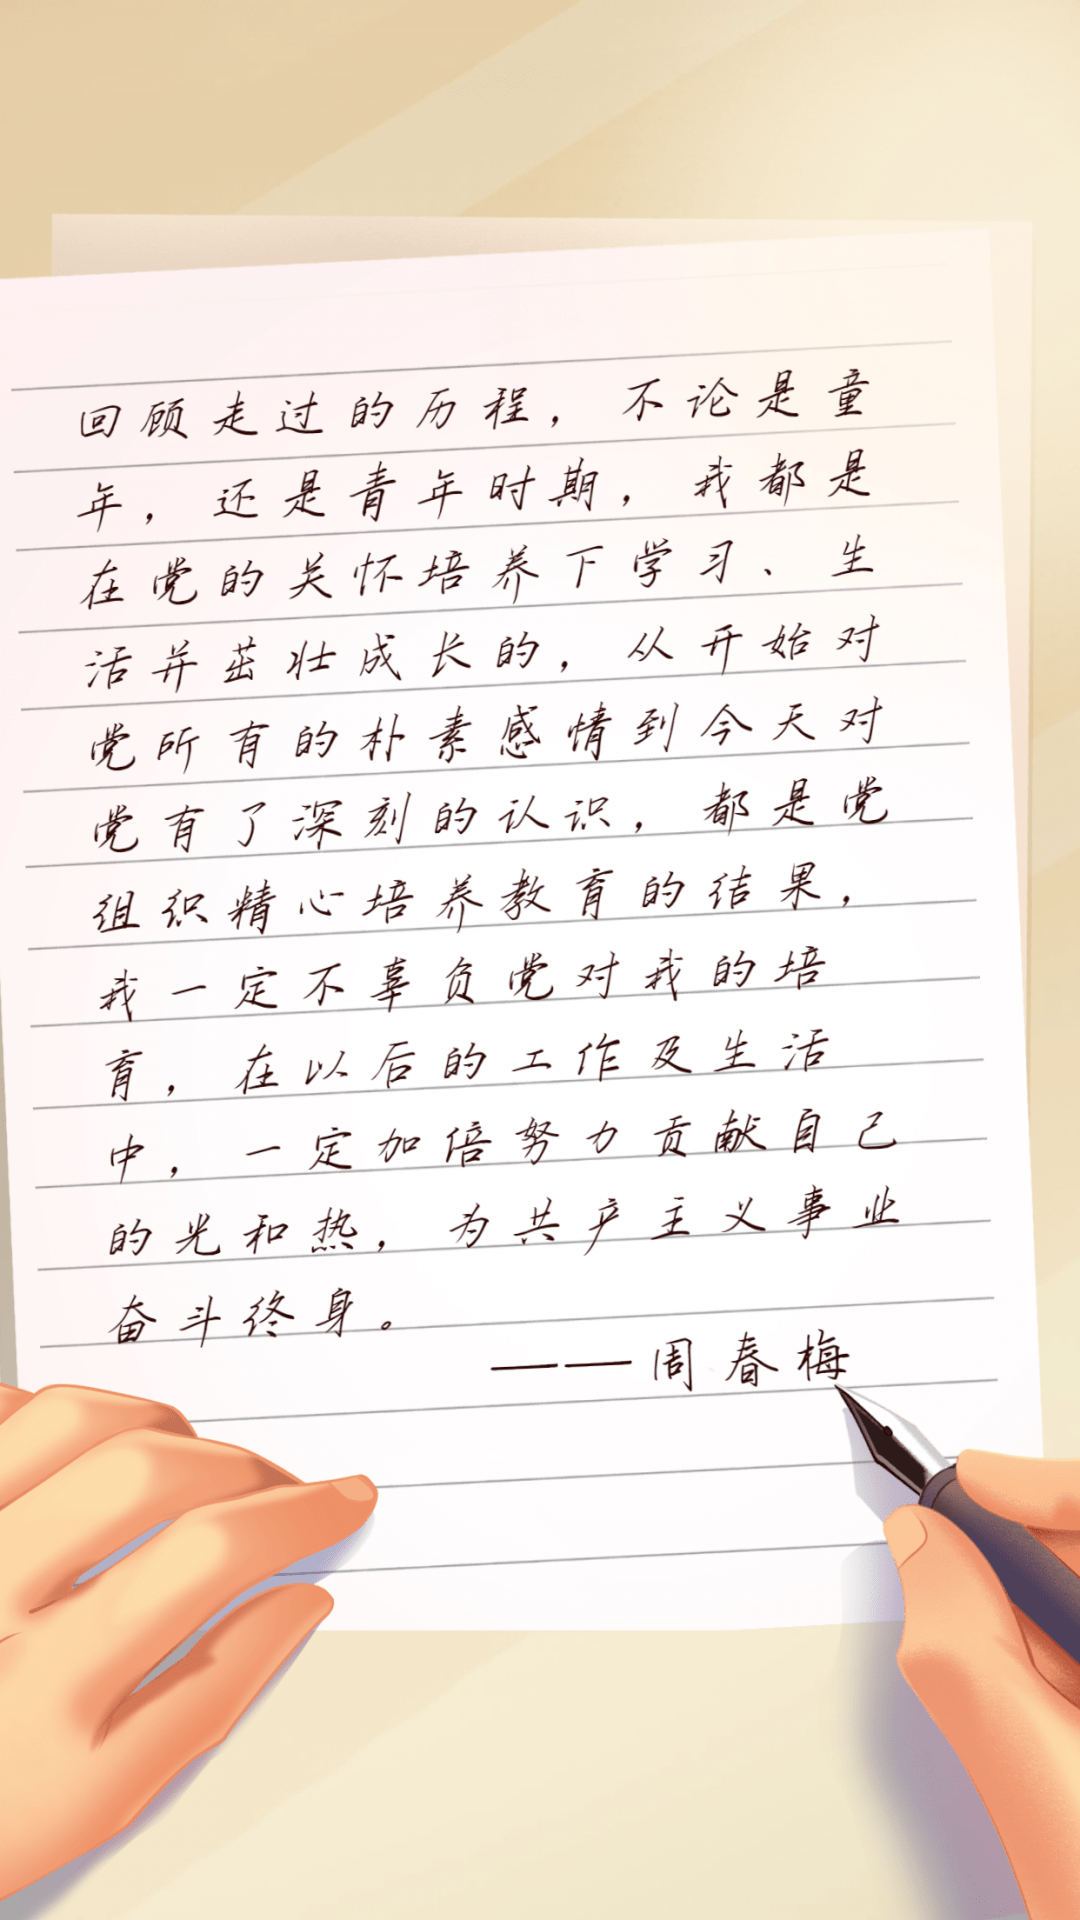 回顾走过的历程，不论是童
年，还是青年时期，我都是
在党的关怀培养下学习、生
活并茁壮成长的，从开始对
党所有的朴素感情到今天对
党有了深刻的认识，都是党
组织精心培养教育的结果，
我一定不辜负党对我的培
育，在以后的工作及生活
中，一定加倍努力贡献自己
的光和热，为共产主义事业
奋斗终身。
——周春梅